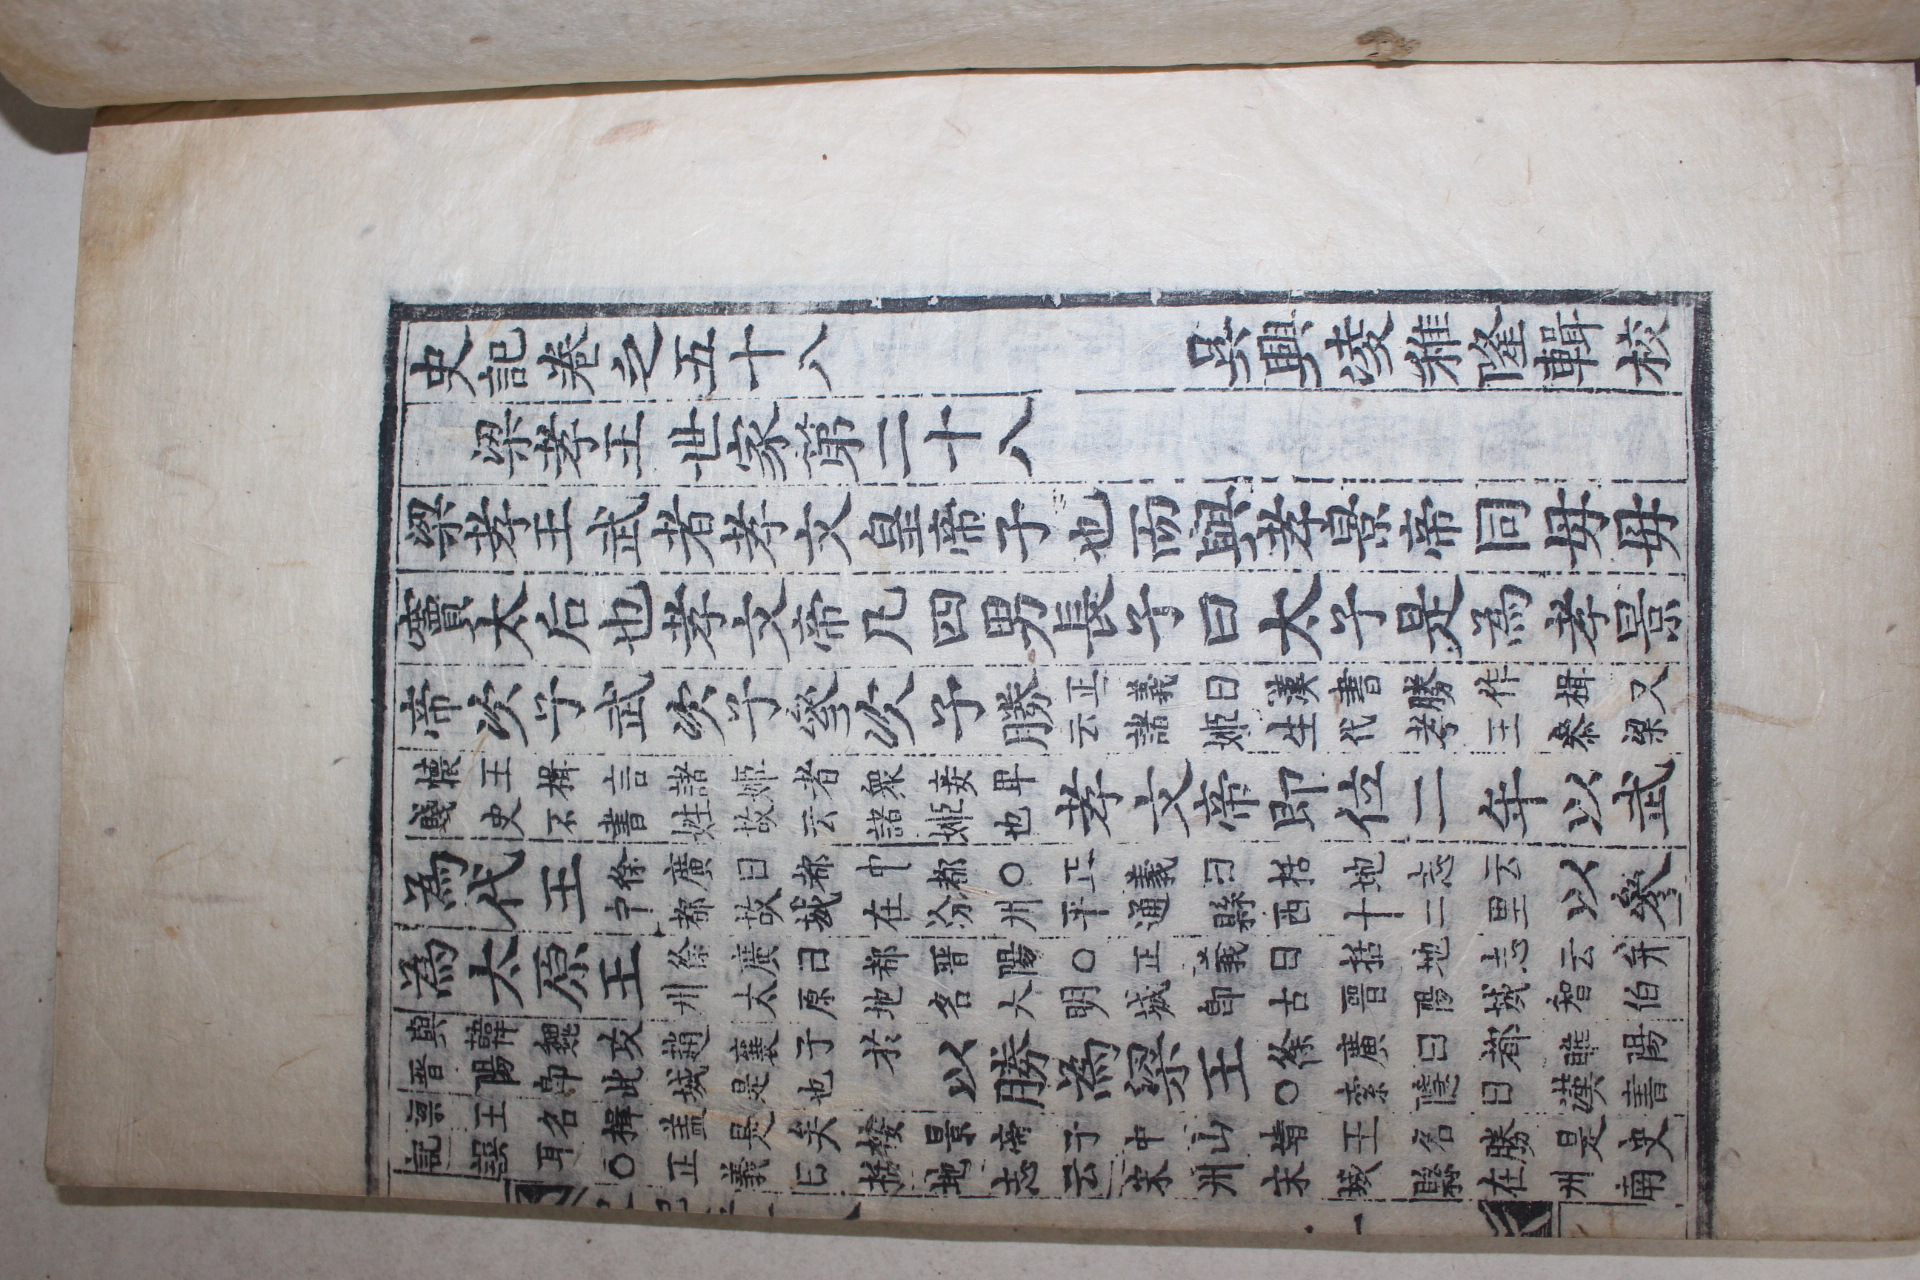 史記卷之五十八 吳興凌稚隆輯校
梁孝王世家第二十八
梁孝王武者孝文皇帝子也而與孝景帝同毋毋
竇太后也孝文帝凡四男長子曰太子是為孝景
帝次子武次子參次子勝 正義曰漢書勝作楫又 云諸姬生代孝王參梁
懷王楫言諸姬者衆妾卑 賤史不書姓故云諸姬也 孝文帝即位二年以武
為代王 徐廣曰都中都〇正義曰括地志云 中都故城在汾州平通縣西十二里 以參
為太原王 徐廣曰都晋陽〇正義曰括地志云并 州太原地名大明城即古晋陽城智伯
與韓魏攻趙襄子於 晋陽即此城是也 以勝為梁王 徐廣曰都睢陽 〇索隱曰漢書
王名揖盖是矣按景帝子中山靖王名勝是史 記誤耳〇正義曰括地志云宋州宋城縣在州南